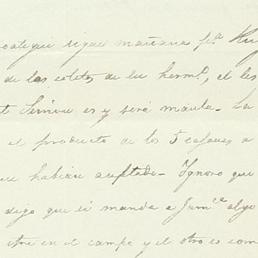 sigue mañana pa
de las cositas de tu hermo, el les
Señor es y será maula. La
el producto de los 5 cajones a
habían aceptado. Ignoro que
digo que si manda a Jamca algo
en el campo y el otro es com